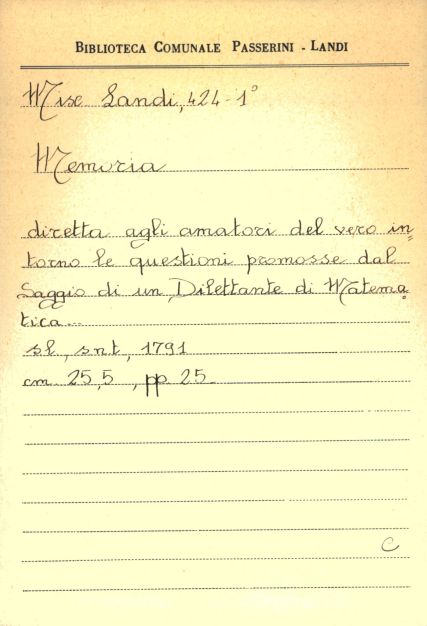 BIBLIOTECA COMUNALE PASSERINI - LANDI
Misc Landi, 424-1°
Memoria
diretta agli amatori del vero in=
torno le questioni promosse dal
Saggio di un Dilettante di Matema=
tica...
sl, snt, 1791
cm 25,5, pp 25.
C